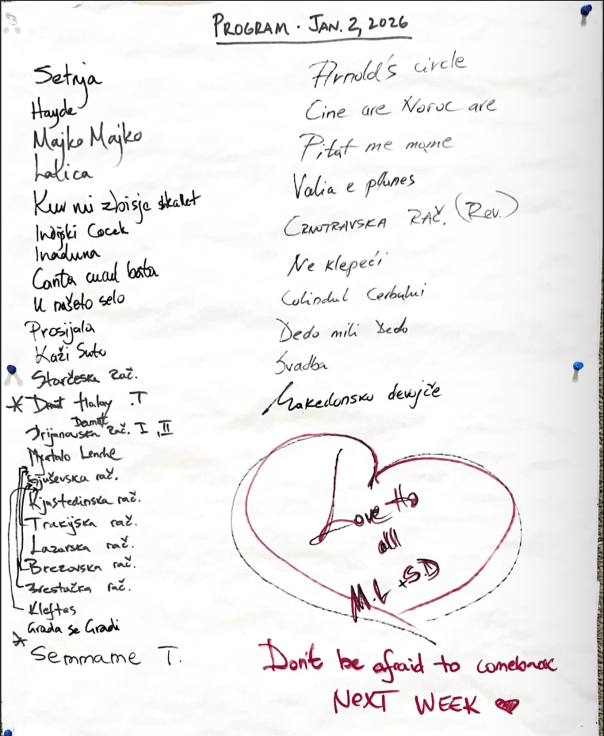 PROGRAM · JAN. 2, 2026
Setnja
Hayde
Majko Majko
Lalica
Kur mi zbisja shkallet
Indijski Cocek
Inaduna
Canta cucul bata
U našeto selo
Prosijala
Kaži Suto
Starčeska Rač.
* Damat Halay .T
Damat
Drijanovska Rač. I, II
Lenche
Gjuševska rač.
Kjustedinska rač.
Trakijska rač.
Lazarska rač.
Brezovska rač.
rač.
Kleftes
Grada se Gradi
* Semmame T.
Arnold's circle
Cine are Noroc are
Pitat me mame
Valia e plunes
CRNOTRAVSKA RAČ. (Rev.)
Ne klepeći
Colindul Cerbului
Dedo mili Dedo
Svadba
Makedonsko devojče
Love to
all
M.L + SD
Don't be afraid to comeback
NEXT WEEK ♥